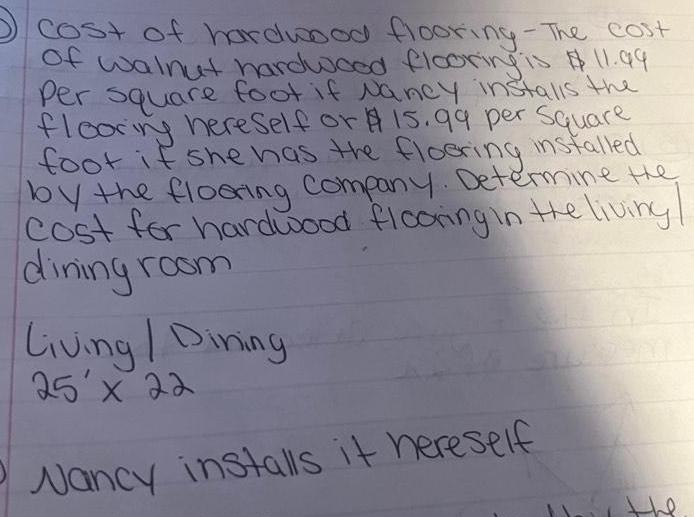 Cost of hardwood flooring - The cost
of walnut hardwood flooring is $11.99
Per square foot if Nancy installs the
flooring hereself or $15.99 per square
foot if she has the flooring installed
by the flooring company. Determine the
cost for hardwood flooring in the living/
dining room
Living / Dining
25' x 22
Nancy installs it hereself
the